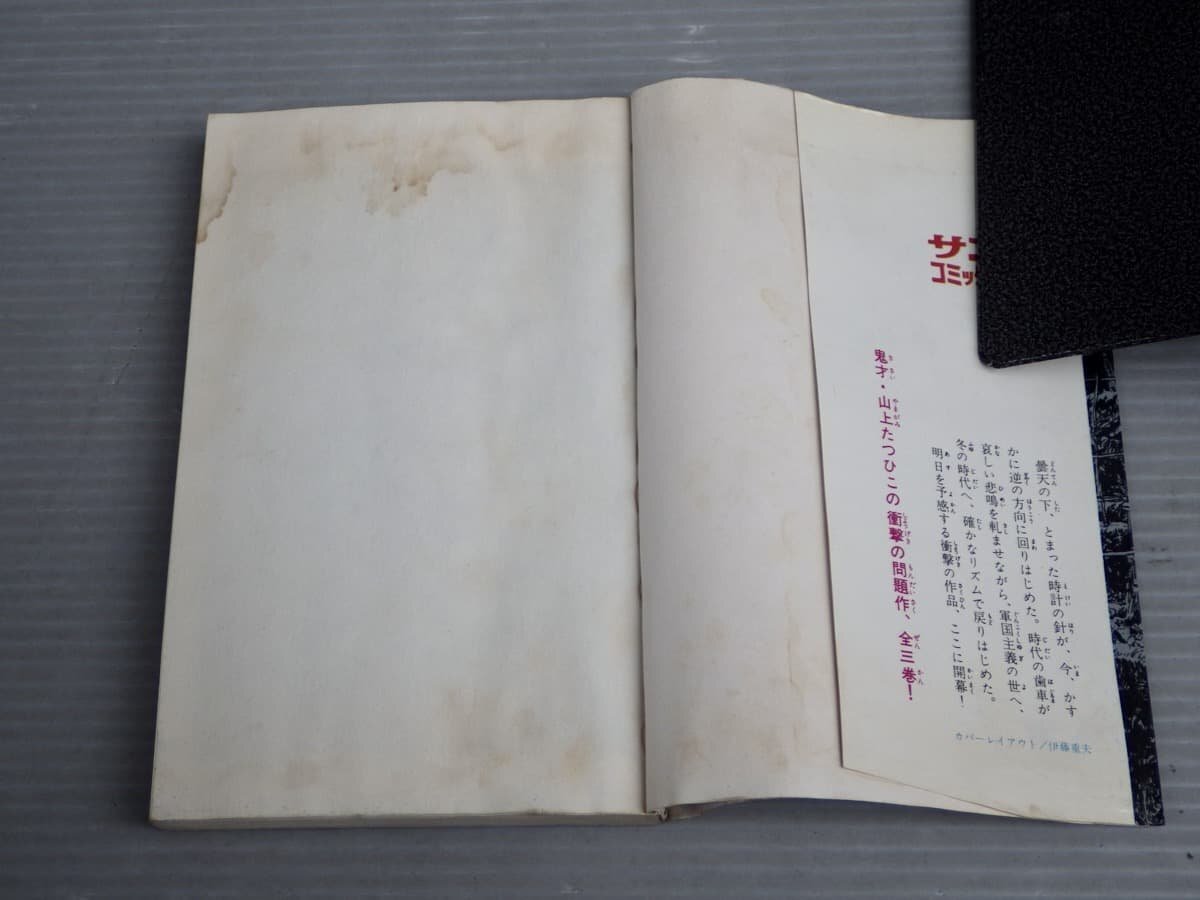 サ
コミッ
曇天の下、とまった時計の針が、今、かす
かに逆の方向に回りはじめた。時代の歯車が
哀しい悲鳴を軋ませながら、軍国主義の世へ、
冬の時代へ、確かなリズムで戻りはじめた。
明日を予感する衝撃の作品、ここに開幕！
鬼才・山上たつひこの衝撃の問題作、全三巻！
カバーレイアウト／伊藤重夫